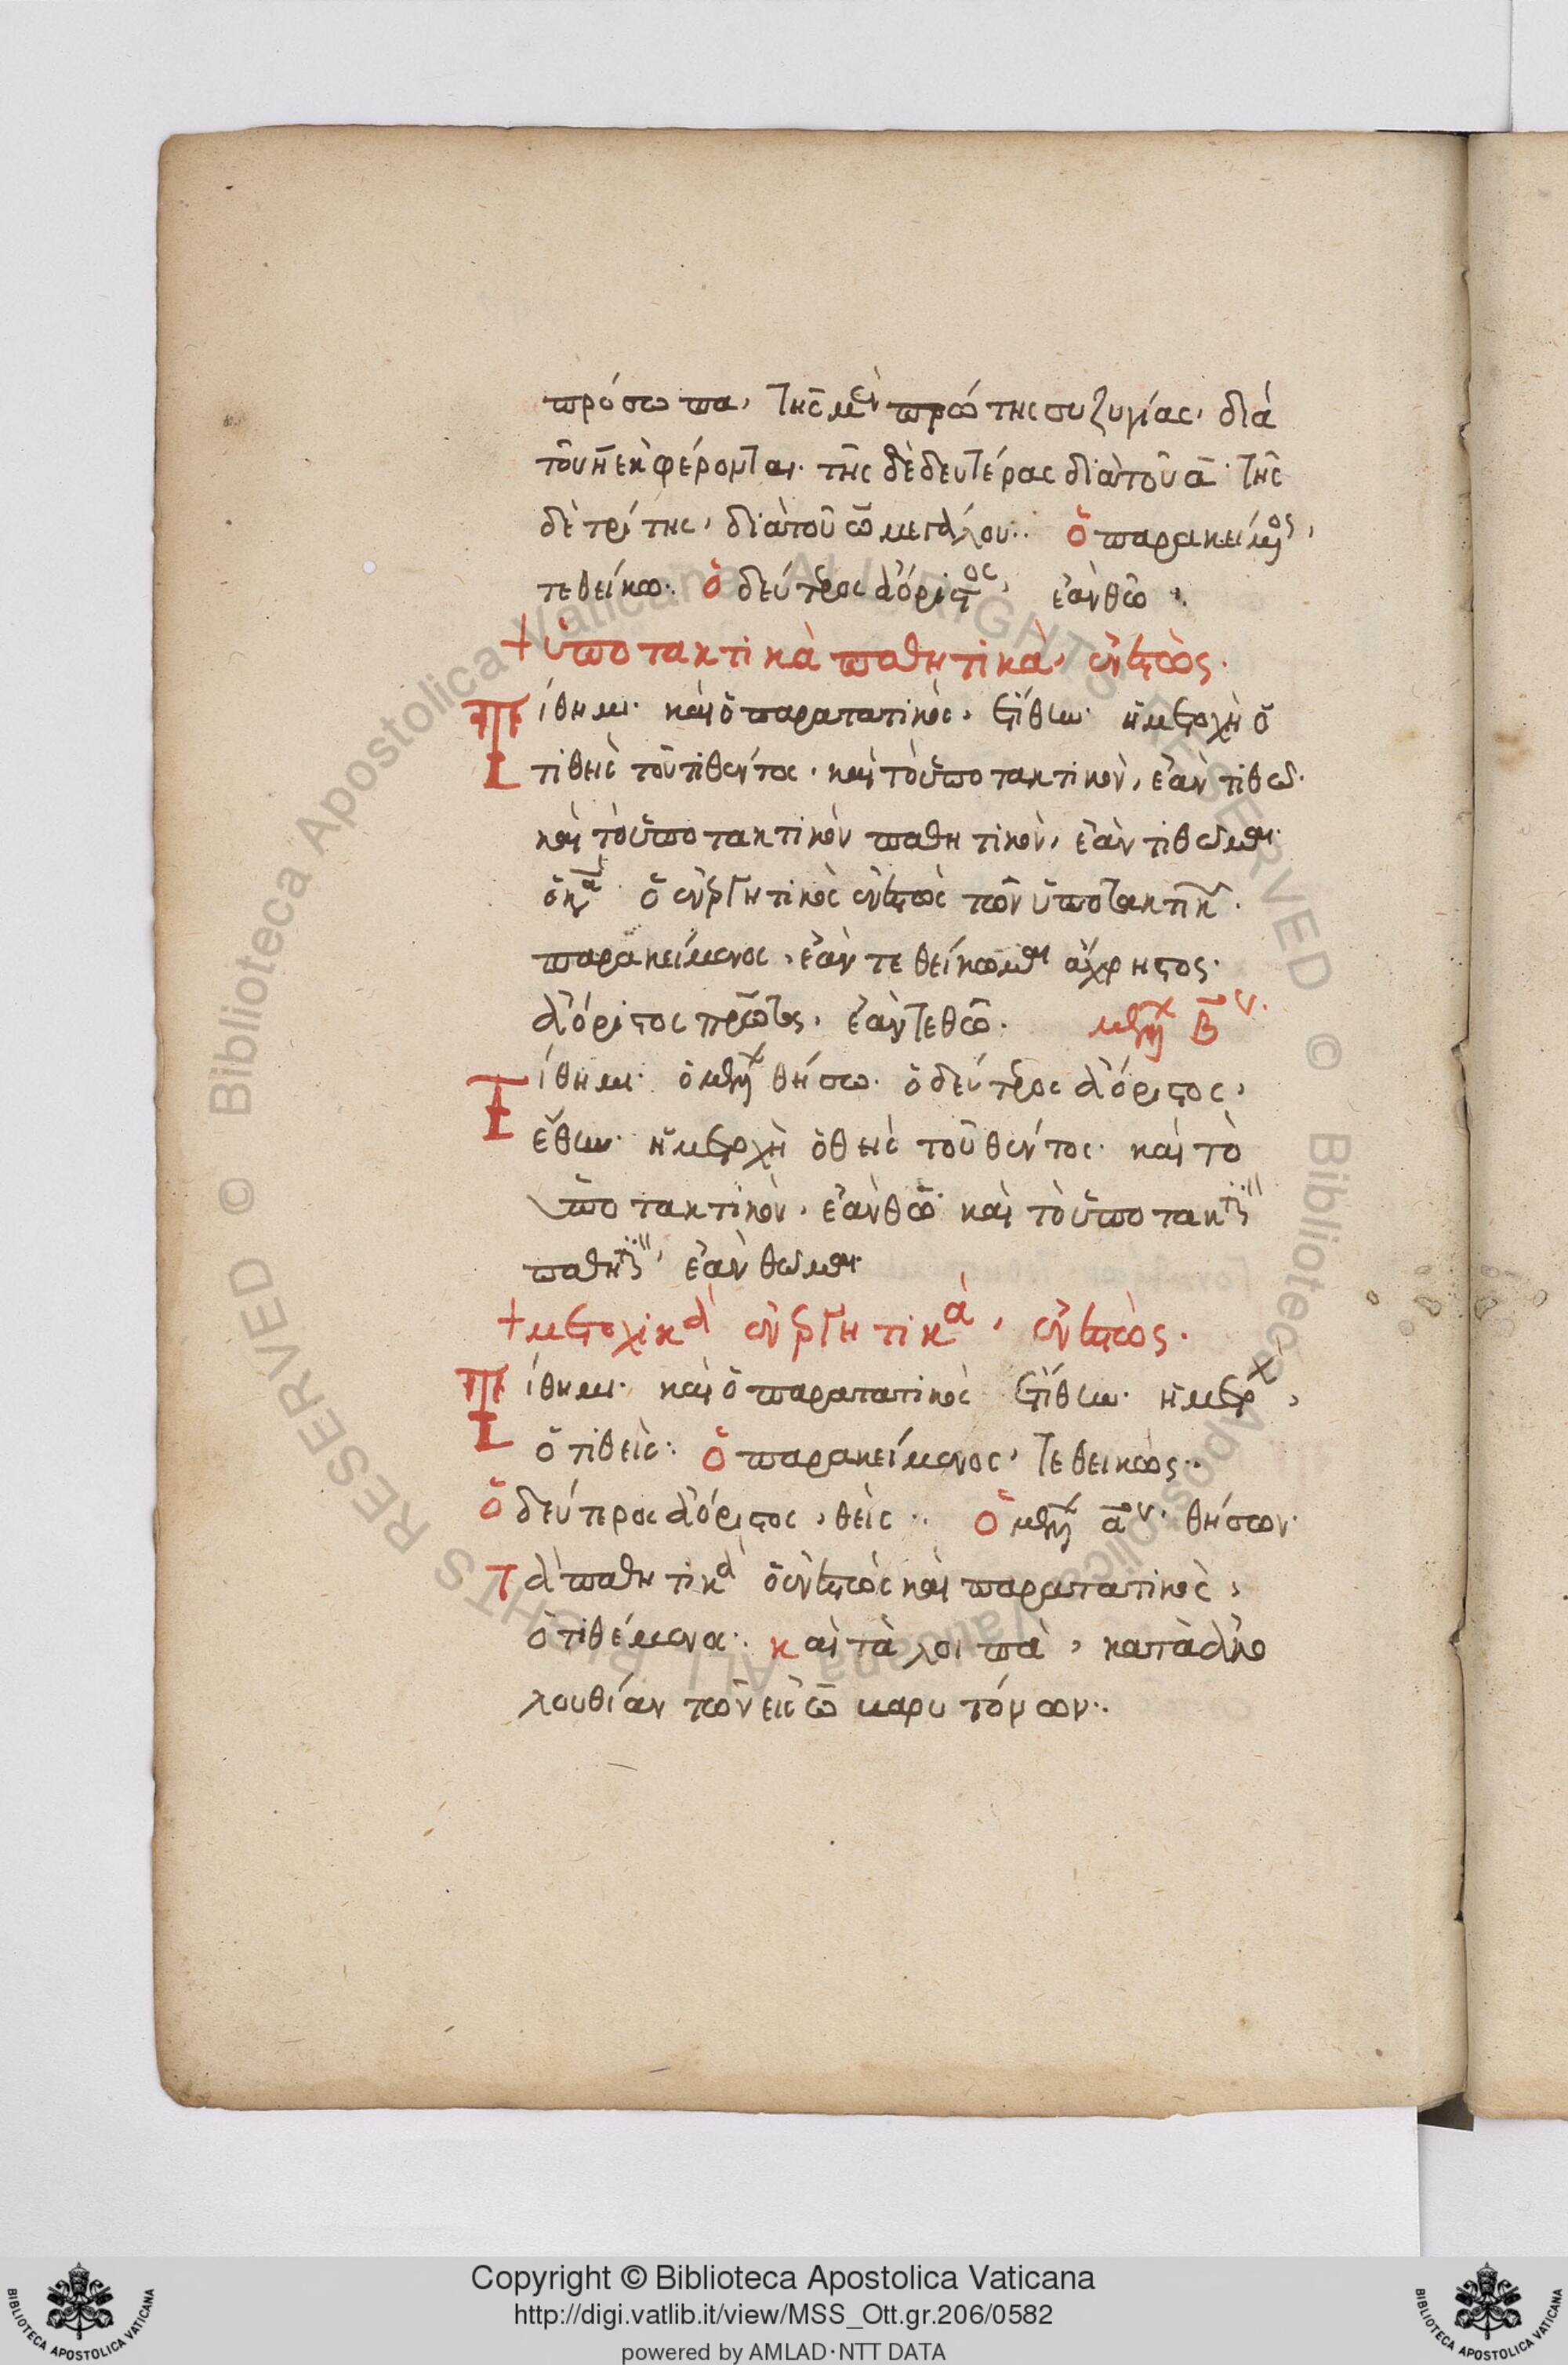 πρόσωπα, τῆς μὲν πρώτης συζυγίας, διὰ
τοῦ η ἐκφέρονται. τῆς δὲ δευτέρας διὰ τοῦ α. τῆς
δὲ τρίτης, διὰ τοῦ ω μεγάλου.. ὁ παρακείμενος,
τεθείκω. ὁ δεύτερος ἀόριστος, ἐὰν θῶ,.
+ ὑποτακτικὰ παθητικὰ, ἐνεστὼς.
Τίθημι. καὶ ὁ παρατατικὸς, ἐτίθην. ἡ μετοχὴ ὁ
τιθεὶς τοῦ τιθέντος. καὶ τὸ ὑποτακτικὸν, ἐὰν τιθῶ.
καὶ τὸ ὑποτακτικὸν παθητικὸν, ἐὰν τιθῶμαι.
ὁ ἐνεργητικὸς ἐνεστὼς τῶν ὑποτακτικῶν.
παρακείμενος, ἐὰν τεθείκωμαι ἄχρηστος.
ἀόριστος πρῶτος, ἐὰν τεθῶ. μέλλων β ου.
Τίθημι. ὁ μέλλων θήσω. ὁ δεύτερος ἀόριστος,
ἔθην. ἡ μετοχὴ ὁ θεὶς τοῦ θέντος. καὶ τὸ
ὑποτακτικὸν, ἐὰν θῶ. καὶ τὸ ὑποτακτικὸν
παθητικὸν, ἐὰν θῶμαι.
+ μετοχικὰ ἐνεργητικὰ, ἐνεστὼς.
Τίθημι. καὶ ὁ παρατατικὸς ἐτίθην. ἡ μετοχὴ,
ὁ τιθεὶς.. ὁ παρακείμενος, τεθεικὼς..
ὁ δεύτερος ἀόριστος, θεὶς.. ὁ μέλλων α. θήσων.
Τὰ παθητικὰ ὁ ἐνεστὼς καὶ παρατατικὸς,
ὁ τιθέμενος.. καὶ τὰ λοιπὰ, κατὰ ἀκο
λουθίαν τῶν εἰς ω βαρυτόνων..
Copyright © Biblioteca Apostolica Vaticana
http://digi.vatlib.it/view/MSS_Ott.gr.206/0582
powered by AMLAD·NTT DATA